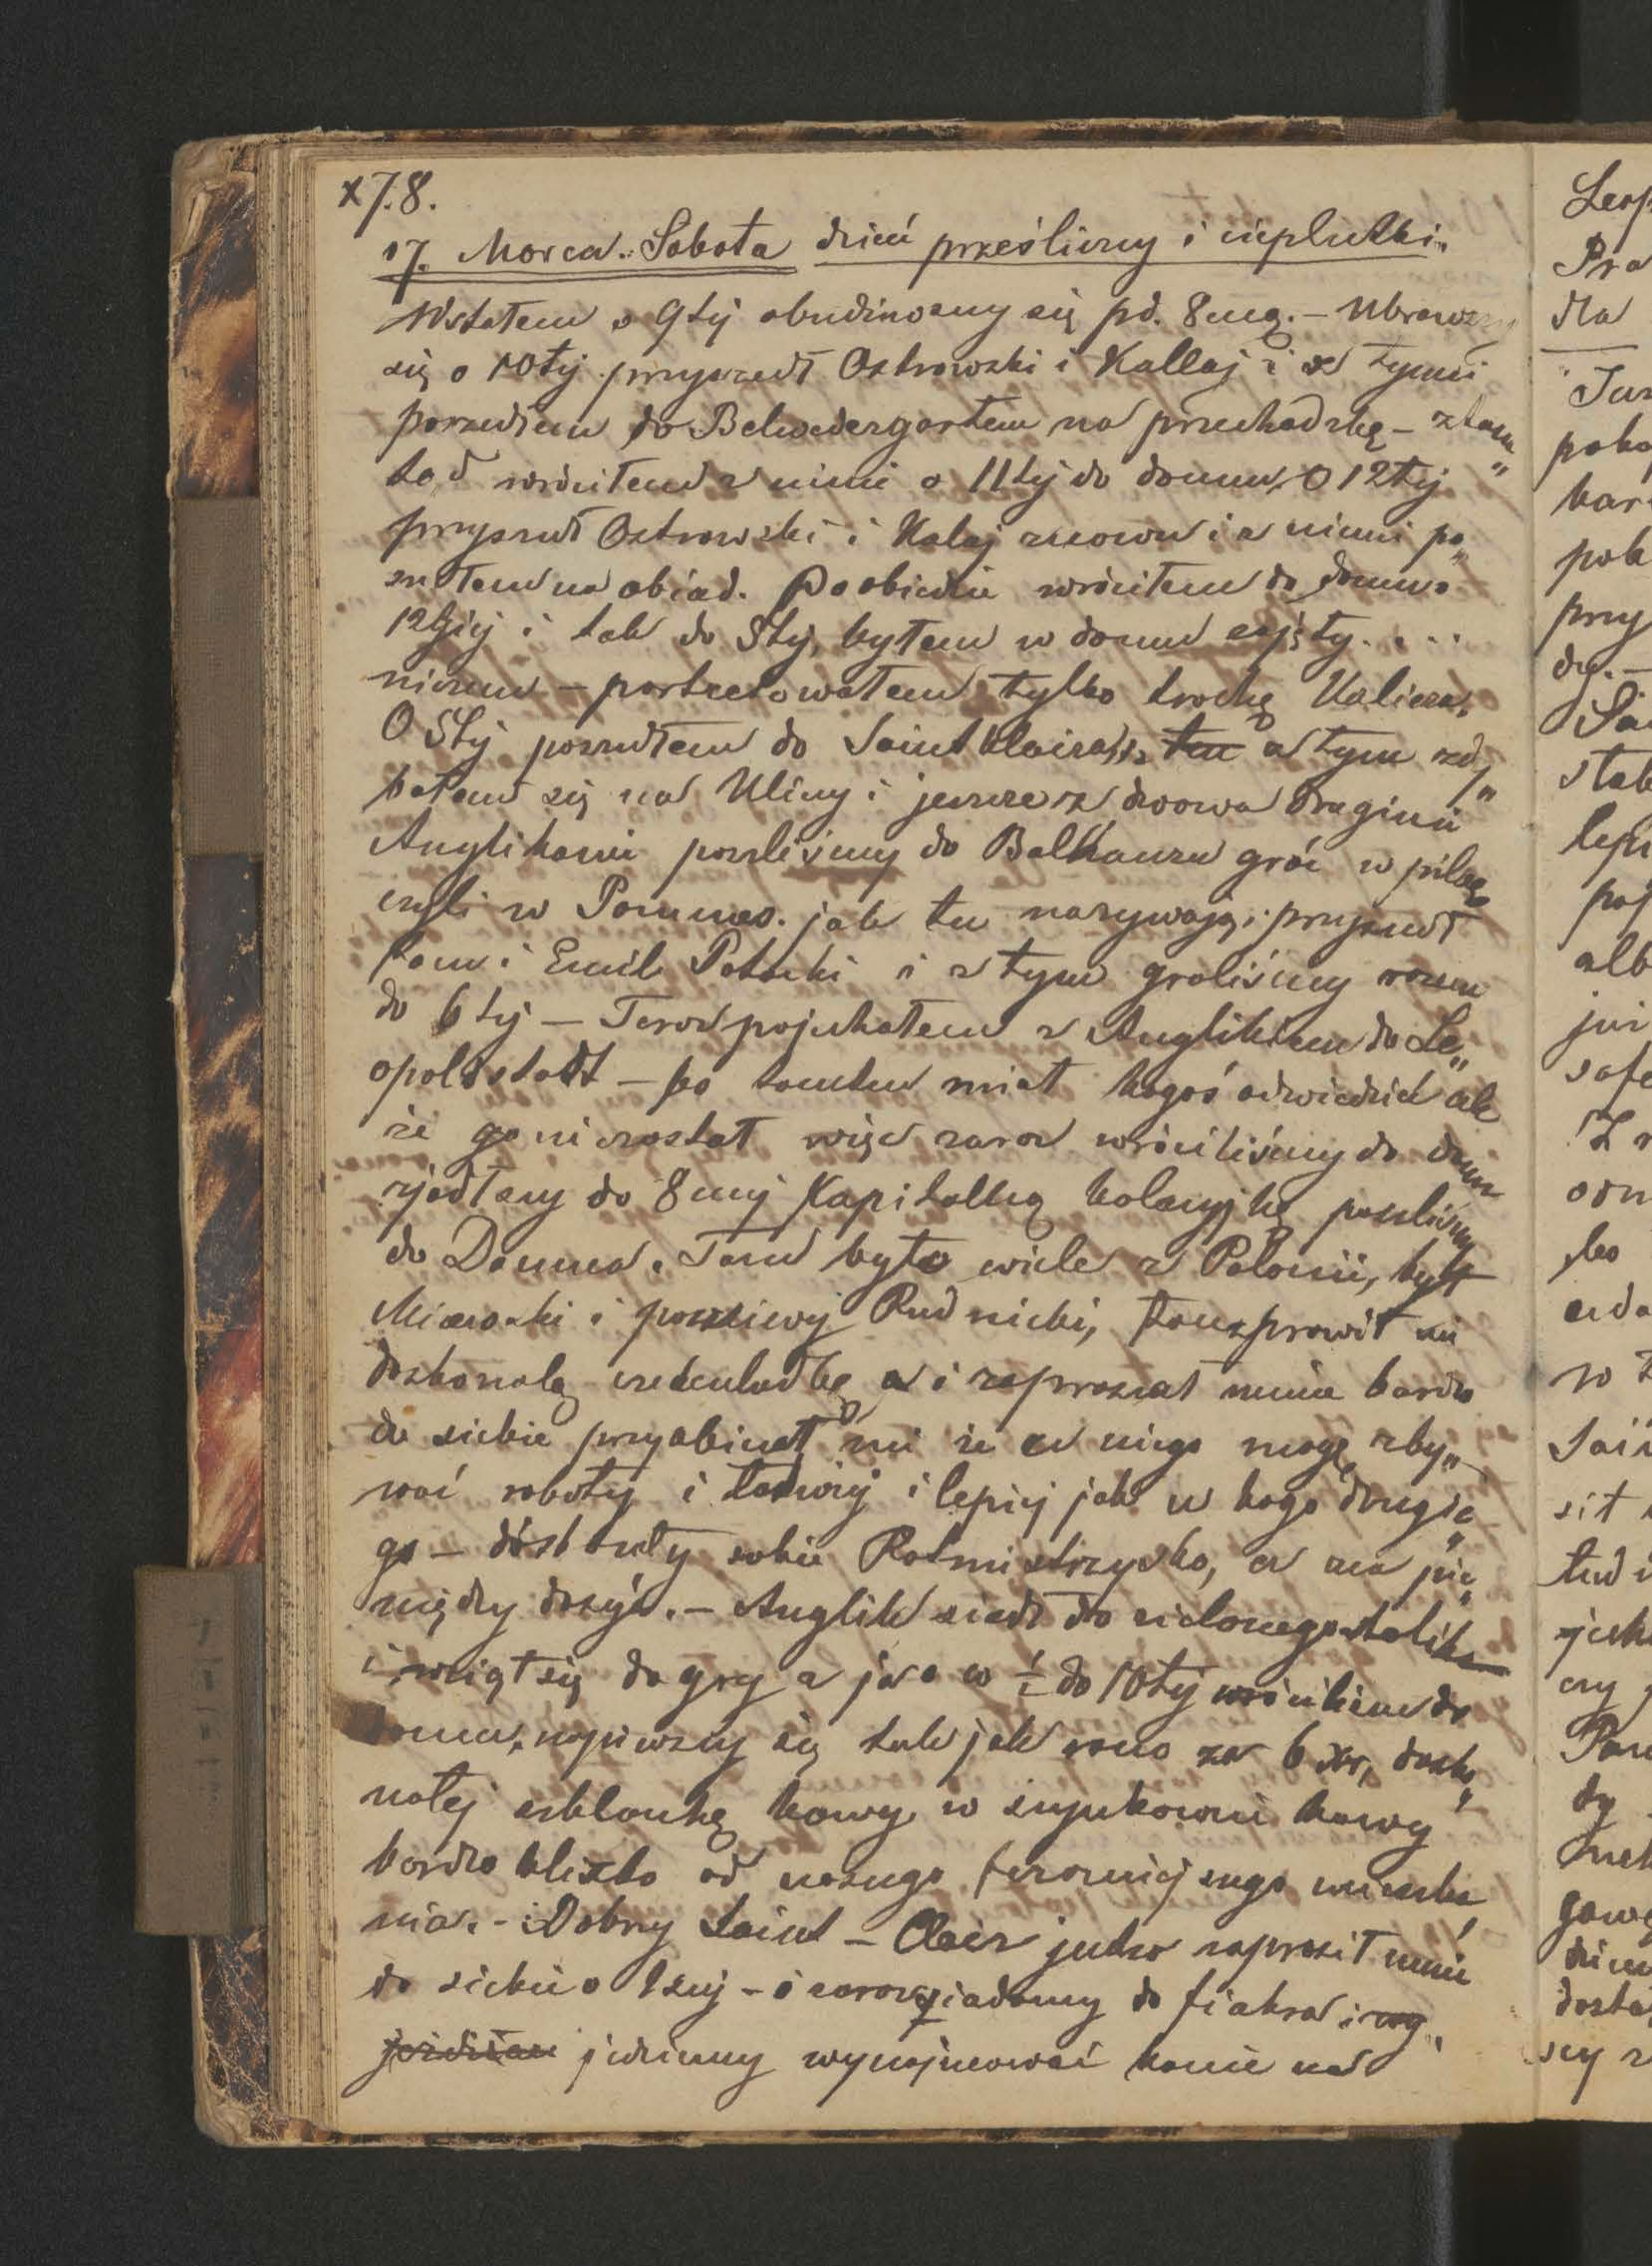 x 7.8.
17. Marca. Sobota dzień prześliczny i cieplutki.
Wstałem o 9tej obudziwszy się pd. 8mą. – Ubrawszy
się o 10tej przyszedł Ostrowski i Kallaj i z tymi
poszedłem do Belwedergarten na przechadzkę – ztam„
tąd wróciłem z nimi o 11tej do domu, O 12tej
przyszedł Ostrowski i Kalaj znowu i z nimi po„
szedłem na obiad. Po obiedzie wróciłem do domu o
i tak do 5tej, byłem w domu zajęty. . . .
niczem – portretowałem tylko trochę Kalicza.
O 5tej poszedłem do Saint Claira, ten z tym zdy„
bałem się na Ulicy i jeszcze z dwoma drugimi
Anglikami poszliśmy do Balhauzu grać w piłkę
czyli w Pommes. jak tu nazywają. przyszedł
tam i Emil Potocki i z tym graliśmy razem
do 6tej – Teraz pojechałem z Anglikiem do Le„
opoldstadt – bo tamten miał kogoś odwiedzić ale
że go nie zastał więc zaraz wróciliśmy do domu
zjadłszy do 8mej Kapitalną kolacyjkę poszliśmy
do Dauma. Tam było wiele z Polonii, był
i poczciwy Rudnicki, tam sprawił mi
doskonałą czekuladkę a i zapraszał mnie bardzo
do siebie przyobiecał mi że u niego mogę zby„
wać roboty i łatwiej i lepiej jak u kogo drugie„
go – sobie Rotmistrzysko, a ma pie„
niędzy dosyć. – Anglik siadł do zielonego stolika
i wziął się do gry a ja o w ½ do 10tej wróciłem do
domu, napiwszy się tak jak rano za 6 xr, dosko„
nałej szklankę kawy w szynkowni kawy
bardzo blizko od naszego teraźniejszego mieszka
nia. – Dobry Saint – Clair jutro zaprosił mnie
do siebie o 1szej – i zaraz siadamy do fiakra i wy„
jeżdżam jedziemy wynajmować konie na